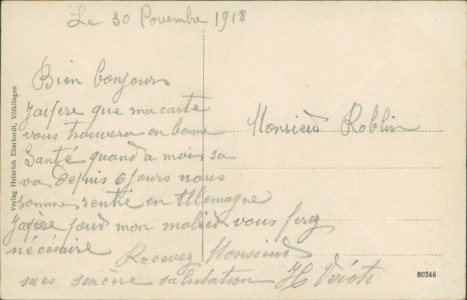 Le 30 Povembre 1918
Bien bonjour
J'aispère que ma carte
vous trouvera en bonne
Santé quand a mois sa
va depuis 6 jours nous
somme rentré en Allemagne
J'aispère pour mon vous ferez
nécésaire
Recevez Monsieur
mes sencère salutation
Monsieur Roblin
Verlag Heinrich Eberhardt, Völklingen
80346